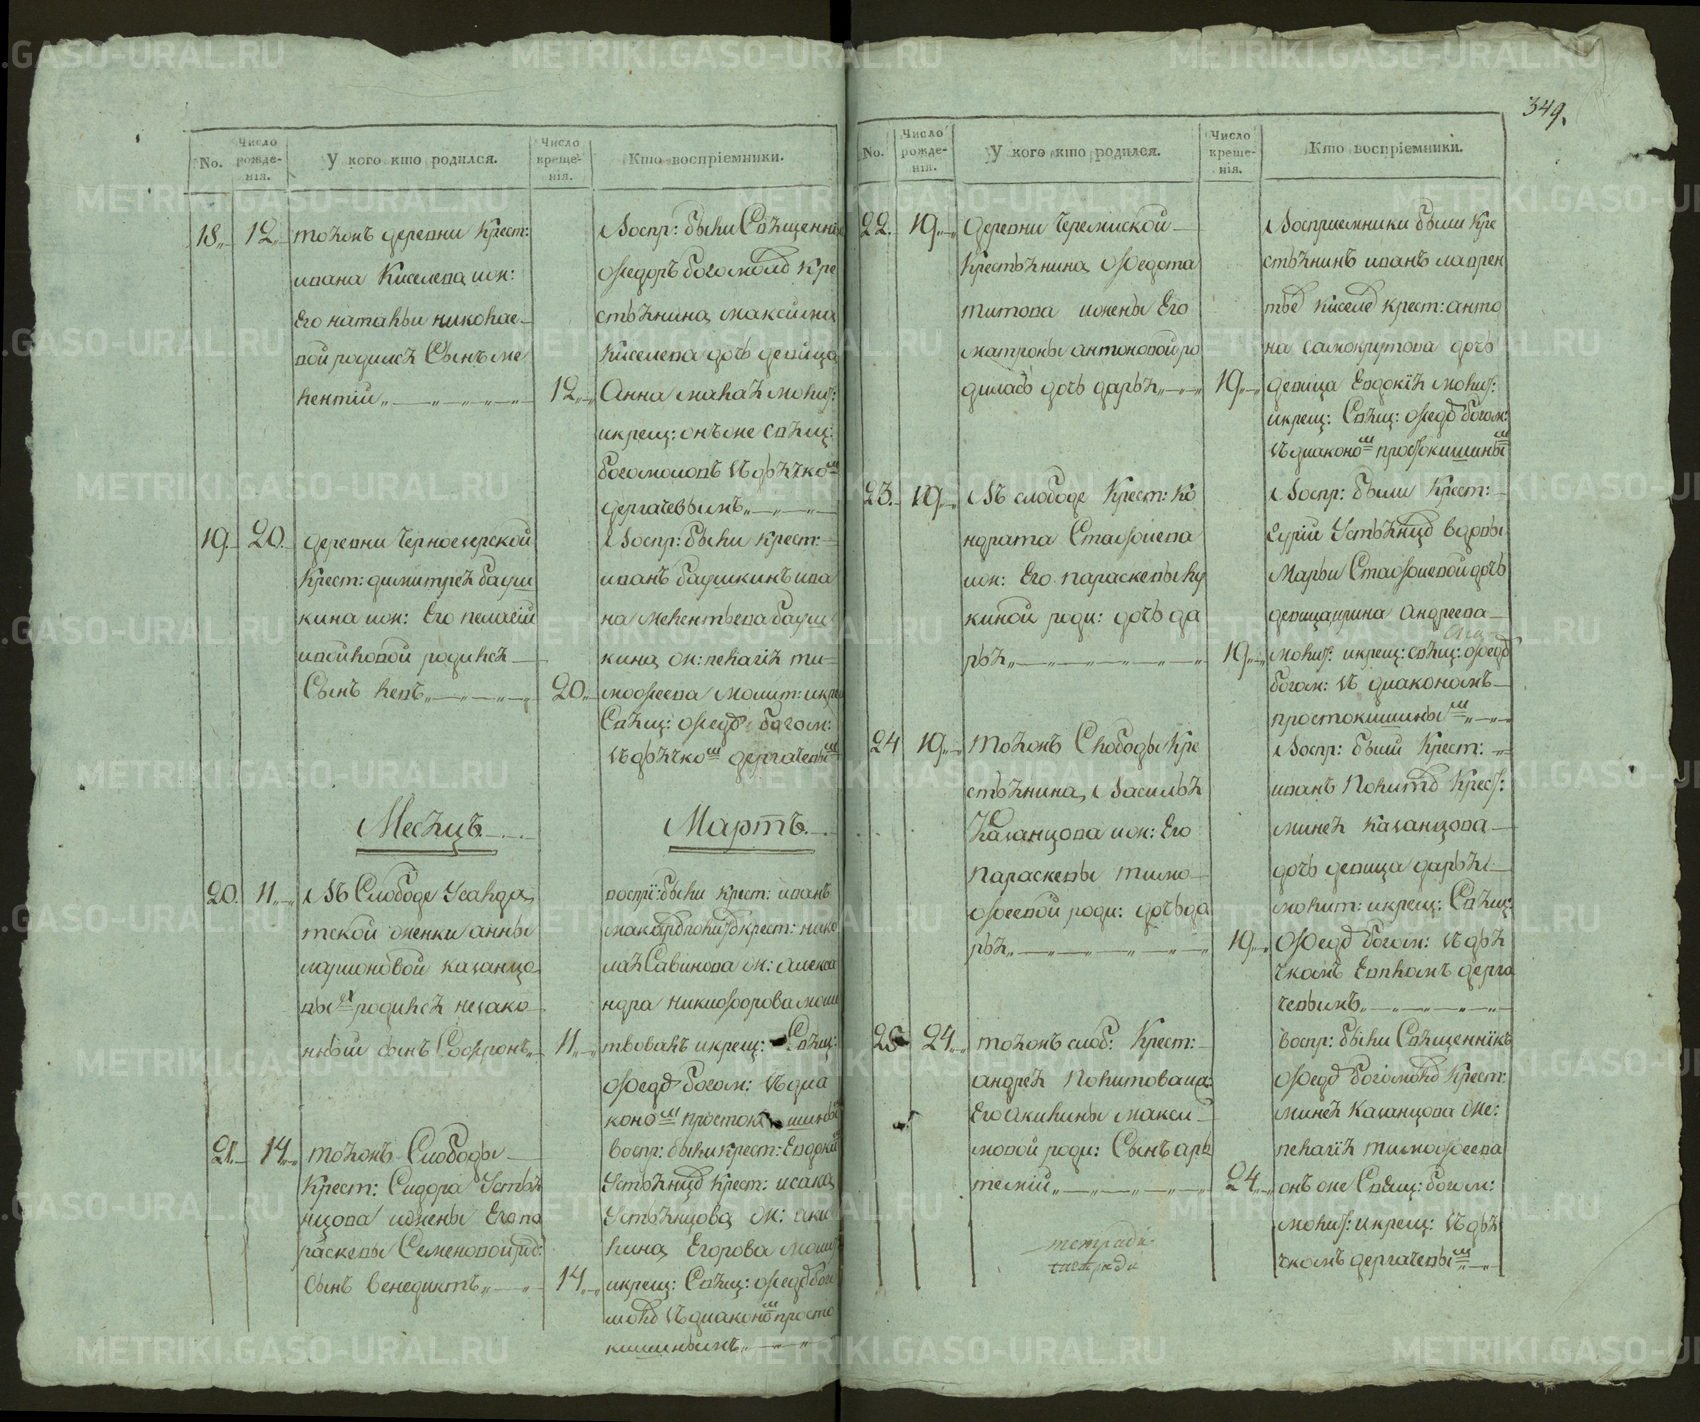 349.
No.
Число рожденія.
У кого кто родился.
Число крещенія.
Кто воспріемники.
18
12
тоѣжъ деревни Крест:
ивана Киселева жен:
Его натальи николае
вой родился Сынъ ме
лентий
12
Воспр: были Священни
Ѳедоръ богомолов Кре
стьянина максима
Киселева дочь девица
Анна малая молит:
икрещ: онъже свящ:
богомоловъ съ дьячком
дергачевымъ
19
20
деревни Черноозерской
Крест: димитрея бауш
кина жен: Его пелагии
ивойловой родился
Сынъ левъ
20
Воспр: были крест:
иванъ баушкинъ ива
на мелентьева бауш
кина ж: пелагея ти
моѳеева молит: икрещ
Свящ: Ѳедор богом:
съ дьячком дергачевым
Месяцъ
Мартъ
20
11
Въ Слободе Усалда
тской женки анны
ларионовой казанцо
вы родился незако
нный сынъ Софронъ
11
воспр: были крест: иванъ
макаров крест: нико
лая Савинова ж: алекса
ндра никифорова моли
твовалъ икрещ: Свящ:
Ѳедор богом: съ диа
коном простокишины
21
14
тоѣжъ Слободы
Крест: Сидора Устья
нцова ижены Его па
раскевы Семеновой род:
сынъ венедиктъ
14
воспр: были крест: Евдоки
Устьянцов крест: исака
Устьянцова ж: аки
лина Егорова молит
икрещ: Свящ: Ѳедор бого
молов съ диаконом просто
кишинымъ
No.
Число рожденія.
У кого кто родился.
Число крещенія.
Кто воспріемники.
22
19
деревни Черемиской
Крестьянина Ѳедота
титова ижены Его
матроны антоновой ро
дилась дочь дарья
19
Восприемники были Кре
стьянинъ иванъ лаврен
тьев киселев крест: анто
на самокрутова дочь
девица Евдокия молит:
икрещ: Свящ: Ѳедор богом:
съ диаконом простокишины
23
19
Въ слободе Крест: Ко
ндрата Стаѳѳиева
жен: Его параскевы лу
киной роди: дочь да
рья
19
Воспр: были Крест:
Устьянцов вдовы
Марьи Стаѳѳиевой дочь
девица ирина андреева
молит: икрещ: свящ: Ѳедор
богом: съ диакономъ
простокишины
24
19
тоѣжъ Слободы Кре
стьянина Василья
Казанцова жен: Его
параскевы тимо
ѳѳеевой роди: дочь да
рья
19
Воспр: были Крест:
иванъ Политов Крест:
минея казанцова
дочь девица дарья
молит: икрещ: Свящ:
Ѳедор богом: съ дья
чкомъ Евпломъ дерга
чевымъ
25
24
тоѣжъ слоб: Крест:
андрея политова ж:
Его акилины макси
мовой роди: Сынъ ар
темий
24
воспр: были Священникъ
Ѳедор богомолов Крест:
минея казанцова же:
пелагея тимоѳеева
онъже Свящ: богом:
молит: икрещ: съ дья
чкомъ дергачевым
тетради
тетради